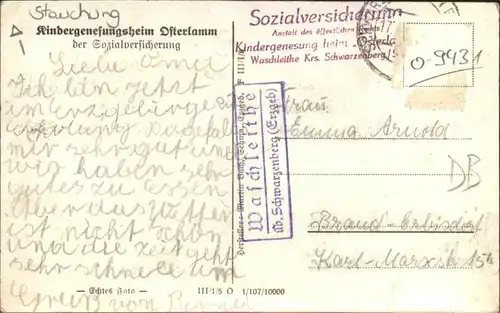 Stauchung
Kindergenesungsheim Osterlamm
der Sozialversicherung
Liebe Oma
Ich bin jetzt
im erzgebirge zur
erholung
mir sehr gut und
wir haben sehr
gutes zu essen
Aber das Wetter
ist nicht schön
und die zeit geht
sehr schnell um
Gruß von
— Echtes Foto —
III/1/5 O 1/107/10000
Sozialversicherung
Anstalt des öffentlichen Rechts
Kindergenesungsheim Osterla
Waschleithe Krs. Schwarzenberg
O-9431
Waschleithe
üb. Schwarzenberg (Erzgeb)
Frau
Emma Arnold
DB
Brand-Erbisdorf
Karl-Marxstr 15